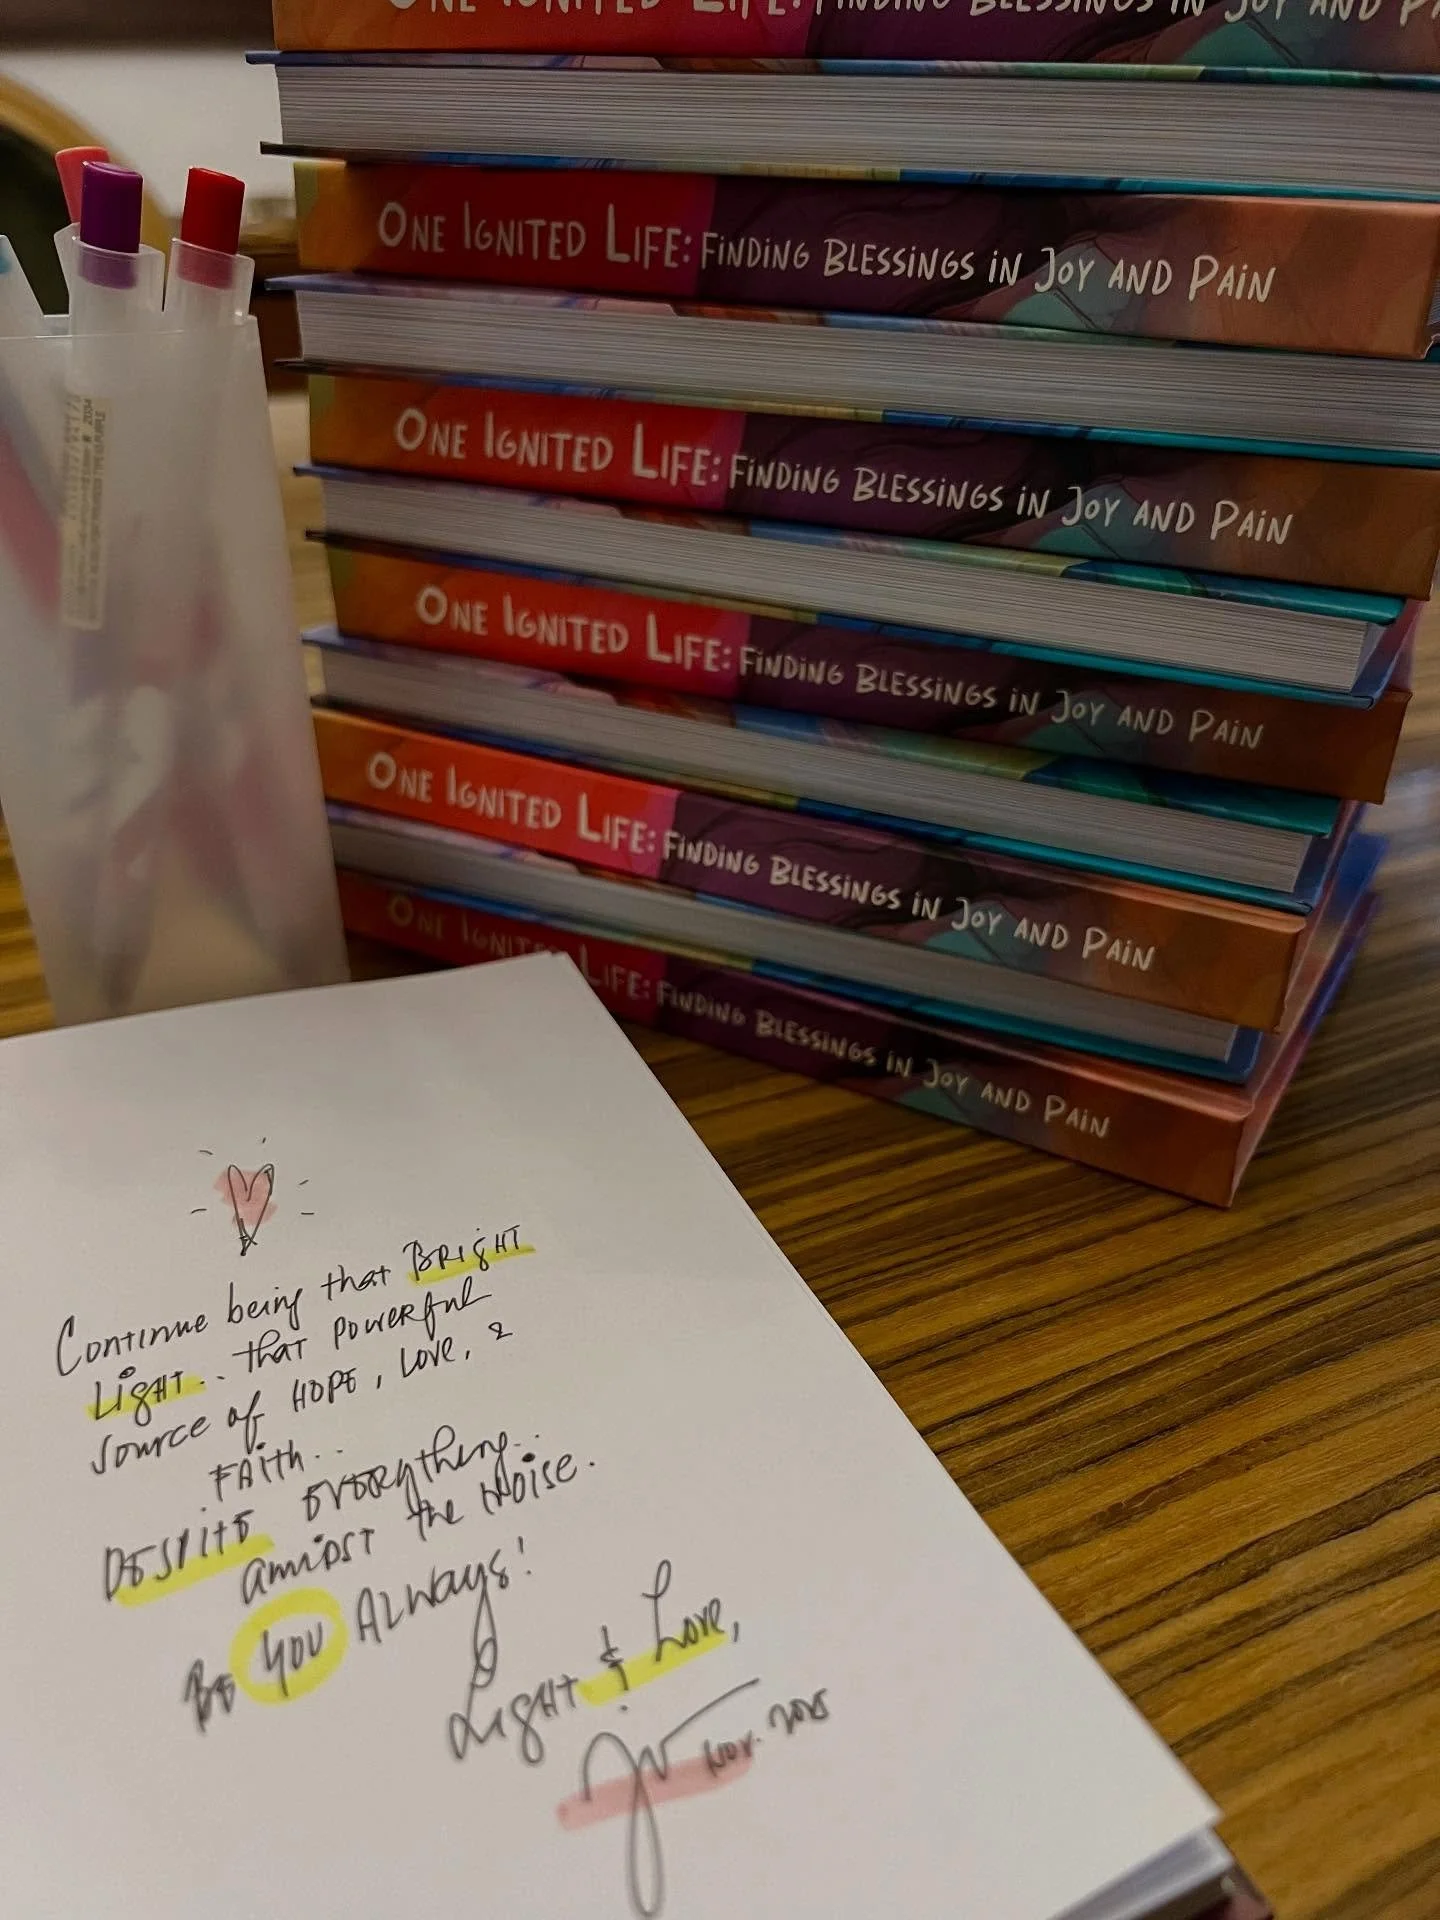 ONE IGNITED LIFE: FINDING BLESSINGS IN JOY AND P
ONE IGNITED LIFE: FINDING BLESSINGS IN JOY AND PAIN
ONE IGNITED LIFE: FINDING BLESSINGS IN JOY AND PAIN
ONE IGNITED LIFE: FINDING BLESSINGS IN JOY AND PAIN
ONE IGNITED LIFE: FINDING BLESSINGS IN JOY AND PAIN
ONE IGNITED LIFE: FINDING BLESSINGS IN JOY AND PAIN
Continue being that BRIGHT
LIGHT.. that powerful
source of HOPE, LOVE, &
FAITH..
DESPITE EVERYthing..
amidst the NOISE.
BE YOU ALWAYS!
Light & Love,
JV NOV. 2025